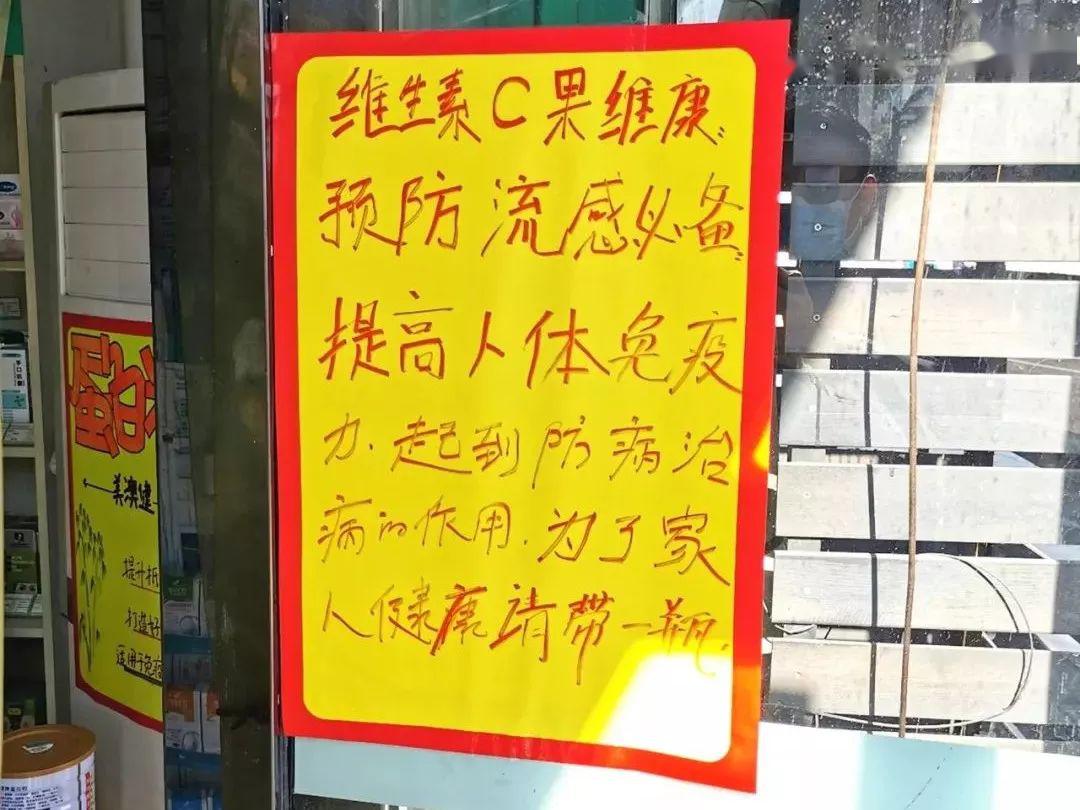 维生素C果维康
预防流感必备
提高人体免疫
力.起到防病治
病的作用.为了家
人健康请带一瓶.
美澳健
提升抵
打造好
适用于免疫